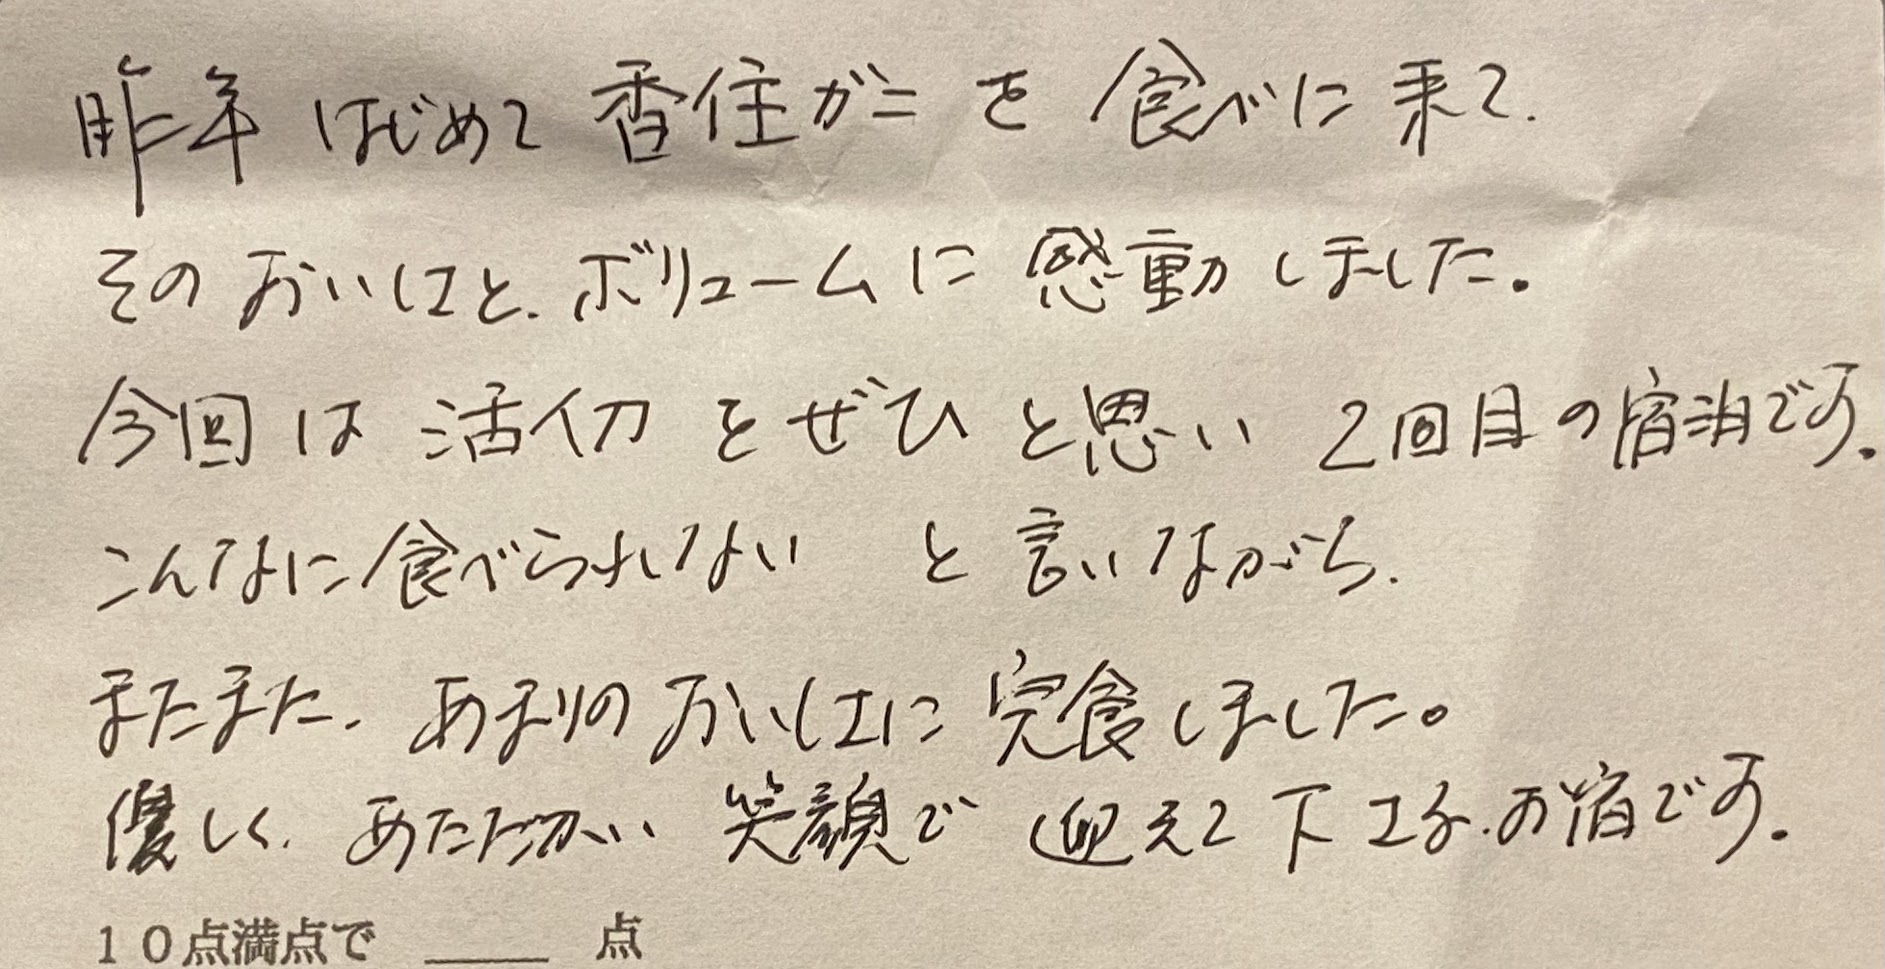 昨年 はじめて 香住ガニ を 食べに 来て.
その おいしさと. ボリュームに 感動 しました。
今回 は 活ガニ を ぜひ と思い 2回目の宿泊です。
こんなに食べられない と 言いながら.
またまた. あまりの おいしさに 完食しました。
優しく. あたたかい 笑顔で 迎えて 下さる. お宿です。
10点満点で ____ 点